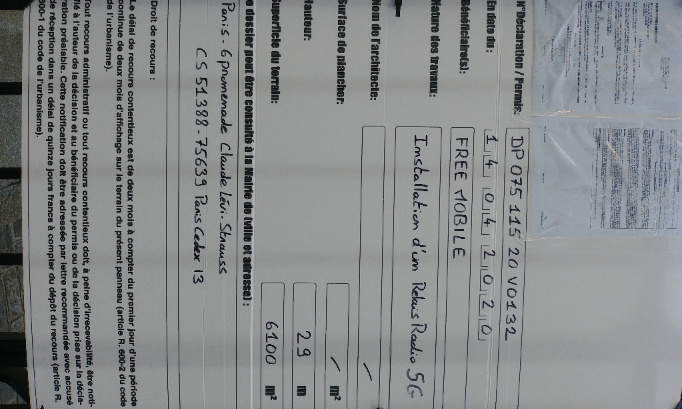 N°Déclaration / Permis: DP 075 115 20 V0132
En date du: 14 04 2020
Bénéficiaire(s): FREE MOBILE
Nature des travaux: Installation d'un Relais Radio 5G
Nom de l'architecte: /
Surface de plancher: / m²
Hauteur: 29 m
Superficie du terrain: 6100 m²
e dossier peut être consulté à la Mairie de (ville et adresse) :
Paris - 6 promenade Claude Lévi-Strauss
CS 51388 - 75639 Paris Cedex 13
Droit de recours :
Le délai de recours contentieux est de deux mois à compter du premier jour d'une période
continue de deux mois d'affichage sur le terrain du présent panneau (article R. 600-2 du code
de l'urbanisme).
Tout recours administratif ou tout recours contentieux doit, à peine d'irrecevabilité, être noti-
fié à l'auteur de la décision et au bénéficiaire du permis ou de la décision prise sur la décla-
ration préalable. Cette notification doit être adressée par lettre recommandée avec accusé
de réception dans un délai de quinze jours francs à compter du dépôt du recours (article R.
600-1 du code de l'urbanisme).